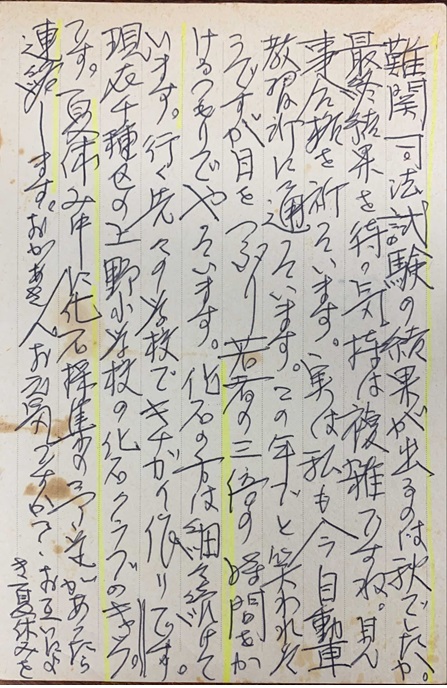 難関司法試験の結果が出るのは秋でしたか。
最終結果を待つ気持は複雑ですね。見
事合格を祈っています。実は私も今自動車
教習所に通っています。この年でと笑われそ
うですが目をつぶり若者の三倍の時間をか
けるつもりでやっています。化石の方は細々続けて
います。行く先々の学校でキチガイ作りです。
現在千種区の上野小学校の化石クラブのキャプ
です。夏休み中に化石採集の予定があったら
連絡します。おかあさん、お元気ですか。お互いによ
き夏休みを